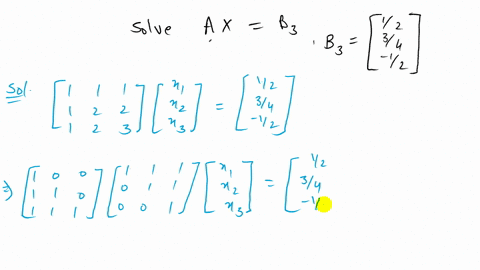 Solve AX = B₃ , B₃ = [1/2 3/4 -1/2]
Sol. [1 1 1 1 2 2 1 2 3] [x₁ x₂ x₃] = [1/2 3/4 -1/2]
⇒) [1 0 0 1 1 0 1 1 1] [1 1 1 0 1 1 0 0 1] [x₁ x₂ x₃] = [1/2 3/4 -1/